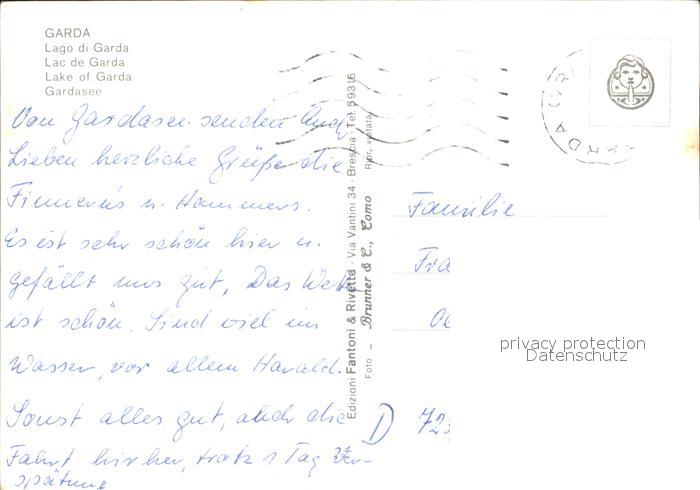 GARDA
Lago di Garda
Lac de Garda
Lake of Garda
Gardasee
Von Gardasee senden Euch
Lieben herzliche Grüße die
u. Hammers.
Es ist sehr schön hier u.
gefällt uns gut, Das Wett
ist schön. Sind viel im
Wasser, vor allem Harald.
Sonst alles gut, auch die
Fahrt hierher, trotz 1 Tag Ver-
spätung
Edizioni Fantoni & Rivetta - Via Vantini 34 - Brescia - Tel. 59316
Foto - Brunner & C., Como Ripr. vietata
GARDA
Familie
Fra
D 723
privacy protection
Datenschutz